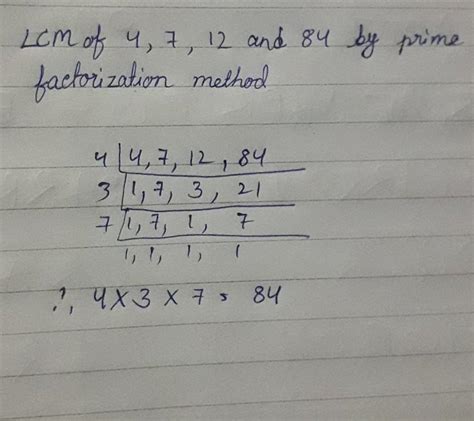 LCM of 4, 7, 12 and 84 by prime
factorization method
4 | 4, 7, 12, 84
3 | 1, 7, 3, 21
7 | 1, 7, 1, 7
1, 1, 1, 1
∴, 4 × 3 × 7 = 84